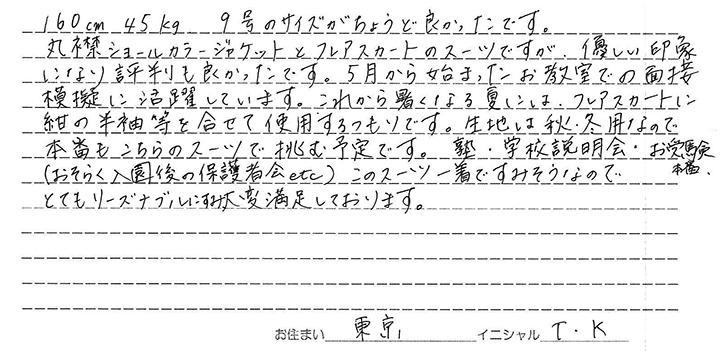 160cm 45kg 9号のサイズがちょうど良かったです。
丸襟ショールカラージャケットとフレアスカートのスーツですが、優しい印象
になり評判も良かったです。5月から始まったお教室での面接
模擬に活躍しています。これから暑くなる夏には、フレアスカートに
紺の半袖等を合せて使用するつもりです。生地は秋・冬用なので
本番もこちらのスーツで挑む予定です。塾・学校説明会・お受験
本番・
(おそらく入園後の保護者会etc)このスーツ一着ですみそうなので
とてもリーズナブルにすみ大変満足しております。
お住まい 東京 イニシャル T・K